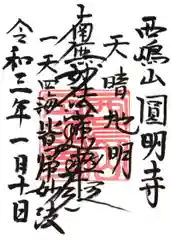 西嶋山 圓明寺
天晴地明
南無妙法蓮華経
一天四海皆帰妙法
令和三年一月十日